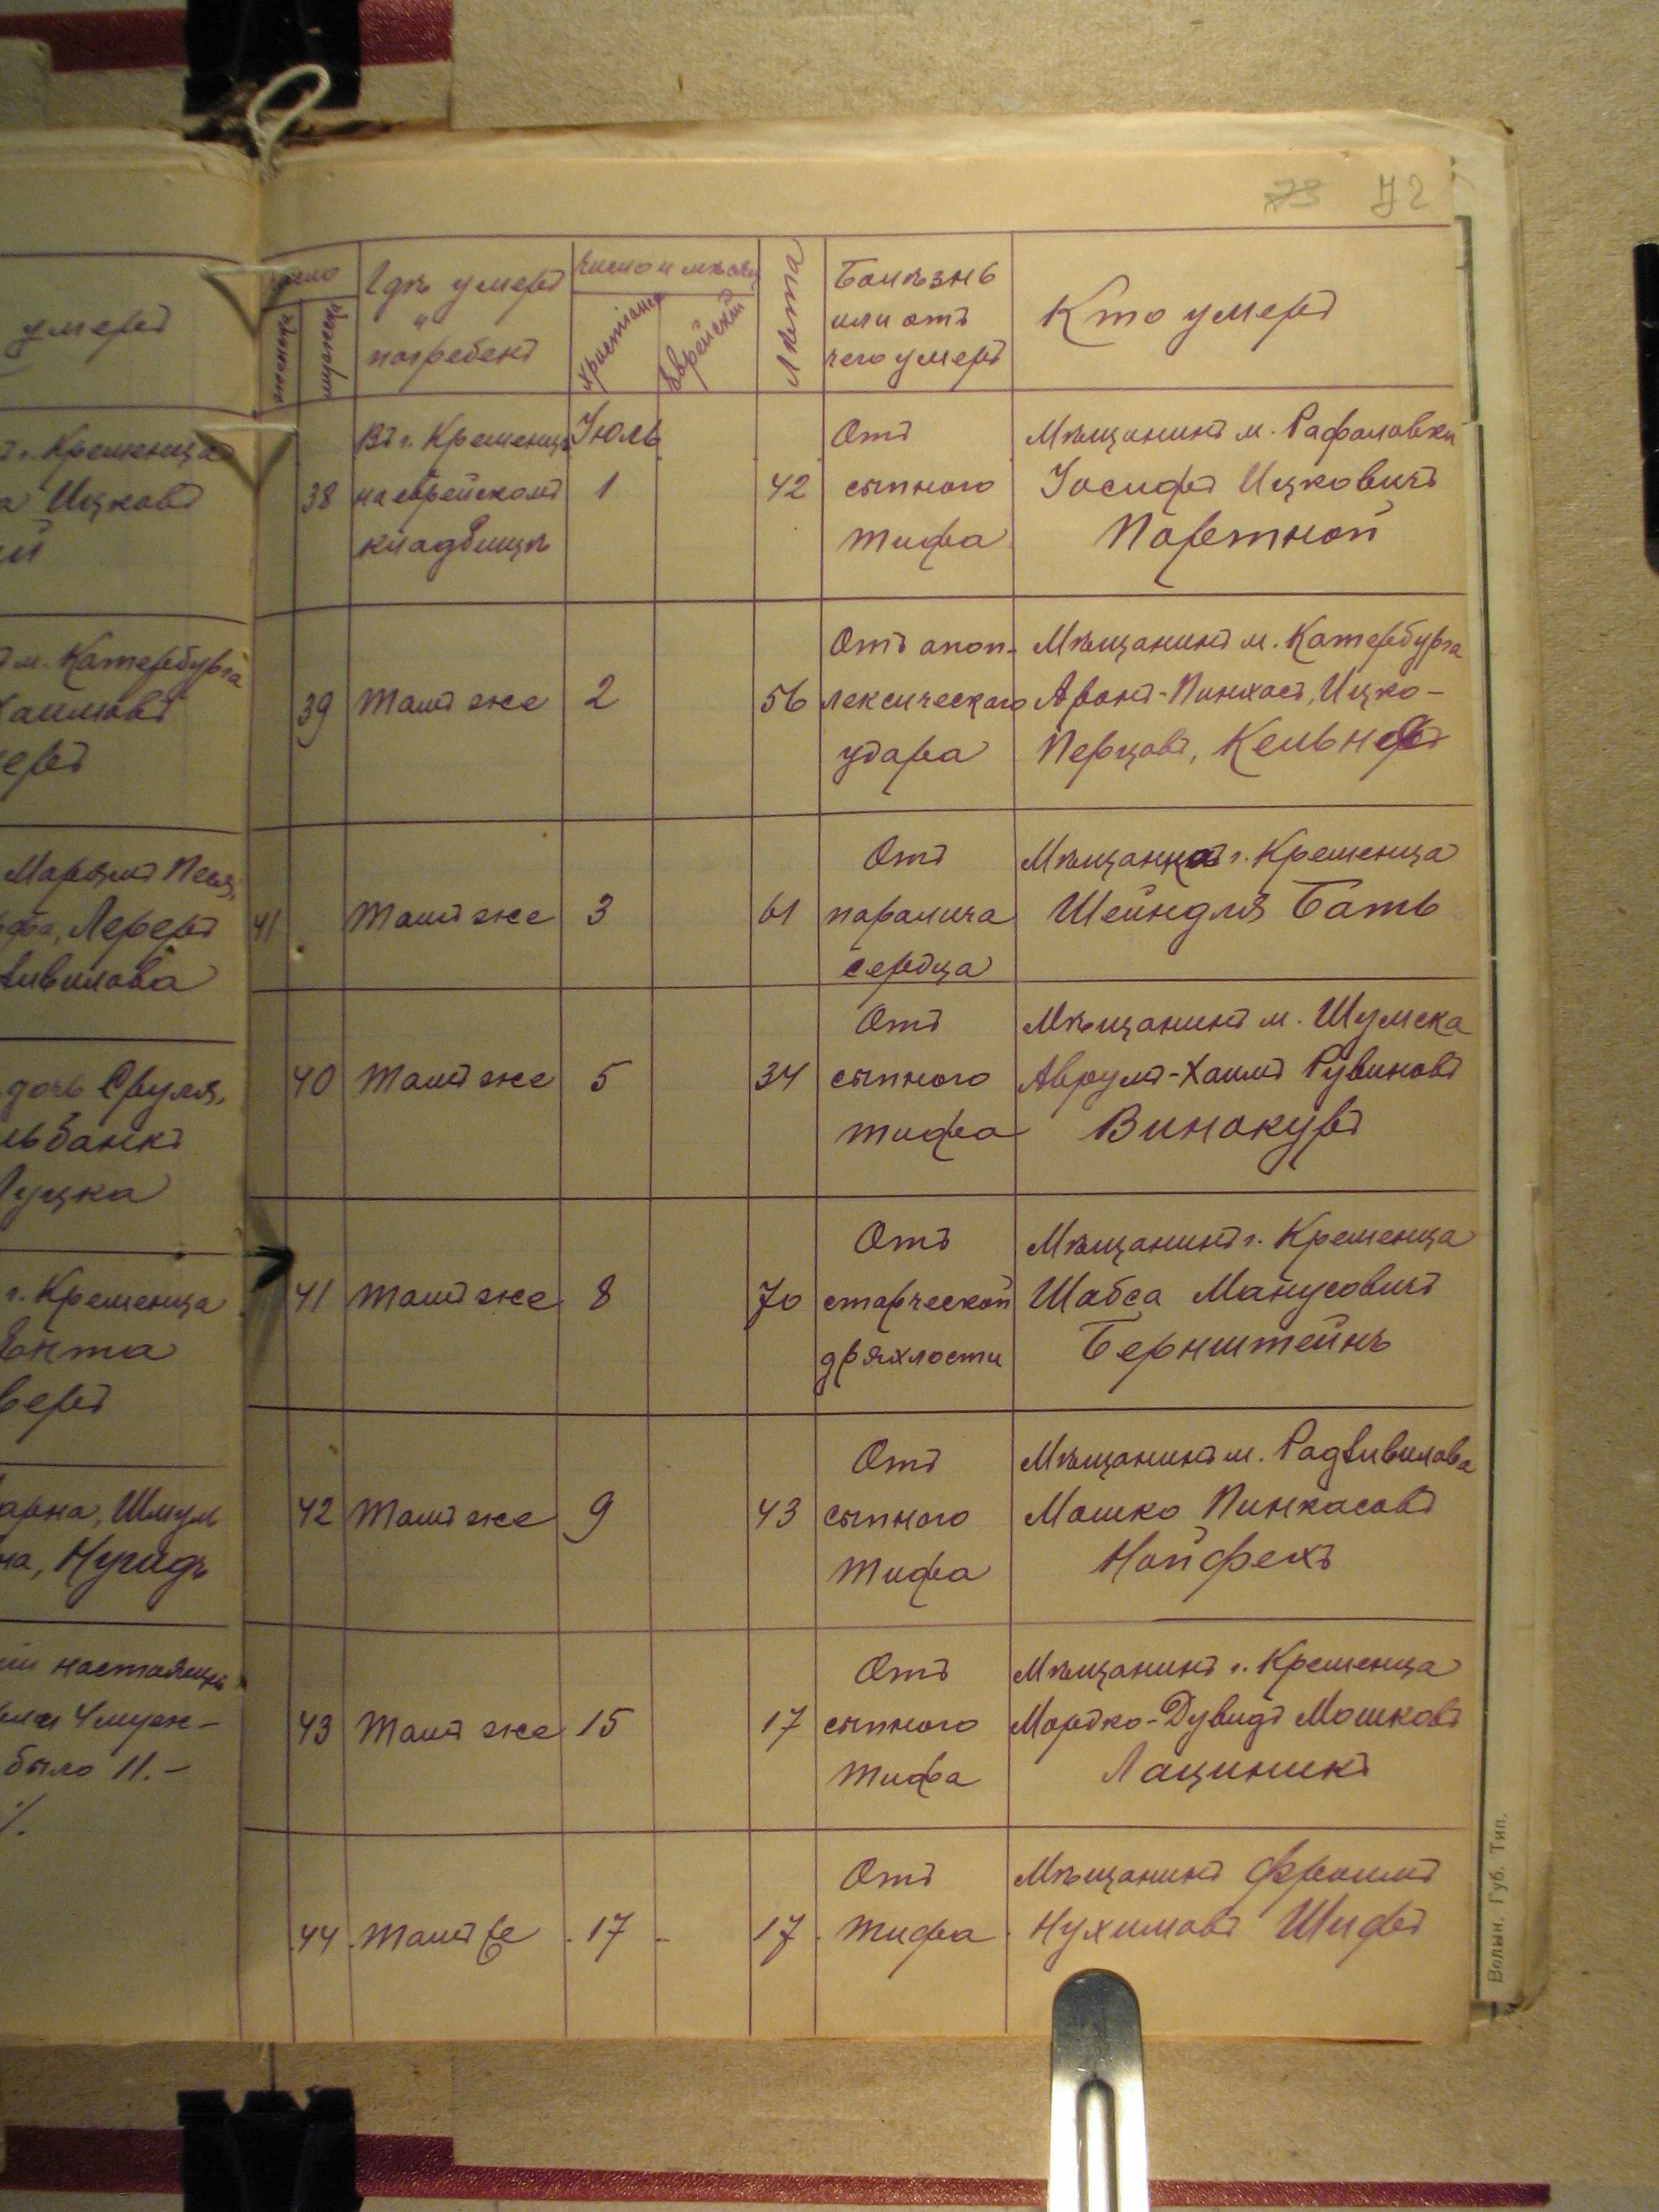 73 72
умеръ
число
женска
мужска
Гдѣ умеръ
и
погребенъ
Число и мѣсяц
Христіанск
Еврейскій
Лѣта
Болѣзнь
или отъ
чего умеръ
Кто умеръ
г. Кременца
Ицковъ
м. Катербурга
Хаимовъ
Лереръ
дочь Сруля,
Луцка
г. Кременца
Шмуль
было 11.-
38
Въ г. Кременцѣ
на еврейскомъ
кладбищѣ
Іюль
1
42
Отъ
сыпного
тифа
Мѣщанинъ м. Рафаловки
Іосифъ Ицковичъ
Портной
39
Тамъ же
2
56
Отъ апоп-
лексическаго
удара
Мѣщанинъ м. Катербурга
Аронъ-Пинхасъ, Ицко-
Перцовъ, Кельнеръ
41
Тамъ же
3
61
Отъ
паралича
сердца
Мѣщанка г. Кременца
Шейндля Бать
40
Тамъ же
5
34
Отъ
сыпного
тифа
Мѣщанинъ м. Шумска
Аврумъ-Хаимъ Рувиновъ
Винокуръ
41
Тамъ же
8
70
Отъ
старческой
дряхлости
Мѣщанинъ г. Кременца
Шабса Манусовичъ
Бернштейнъ
42
Тамъ же
9
43
Отъ
сыпного
тифа
Мѣщанинъ м. Радзивилова
Мошко Пинкасовъ
Нойфехъ
43
Тамъ же
15
17
Отъ
сыпного
тифа
Мѣщанинъ г. Кременца
Мордко-Дувидъ Мошковъ
Лациникъ
44
Тамъ же
17
17
Отъ
тифа
Мѣщанинъ Фроимъ
Нухимовъ Шифъ
Волын. Губ. Тип.